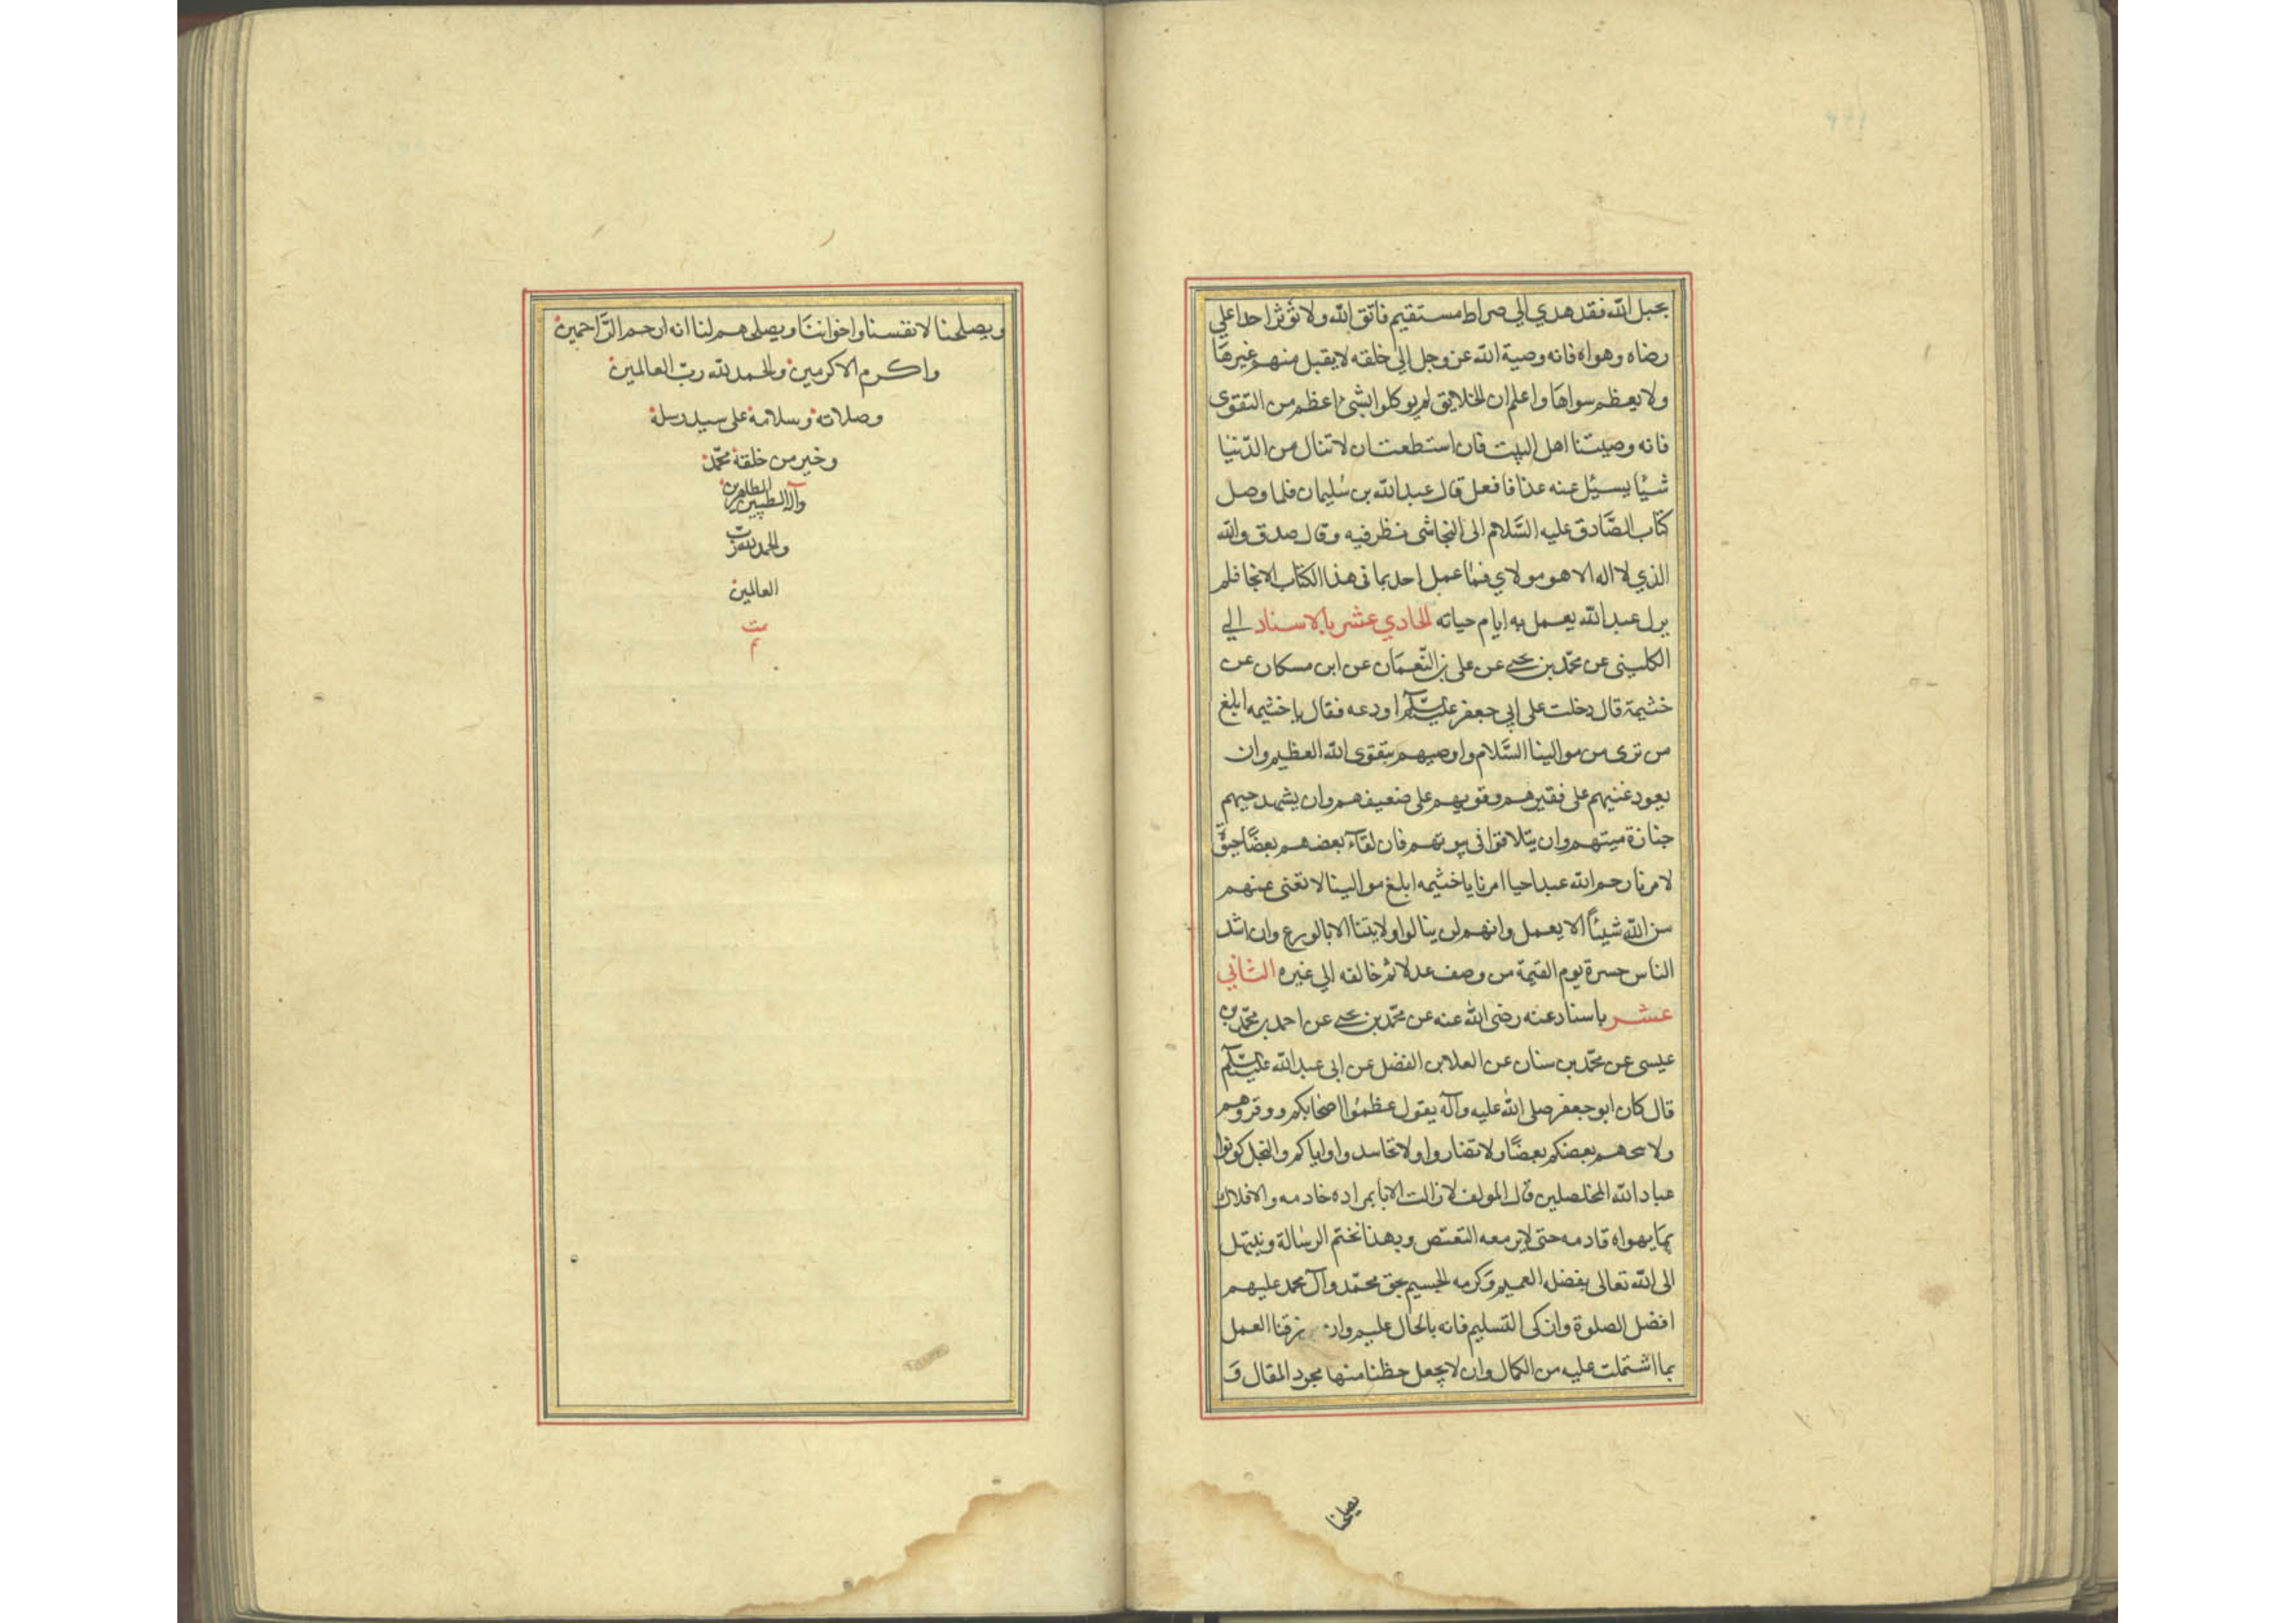 بحبل الله فقد هدي الي صراط مستقيم فاتق الله ولا تؤثر احدا علي
رضاه وهواه فانه وصية الله عز وجل الي خلقه لا يقبل منهم غيرها
ولا يعظم سواها واعلم ان الخلايق لم يوكلوا بشئ اعظم من التقوى
فانه وصيتنا اهل البيت فان استطعت ان لا تنال من الدنيا
شيئا يسئل عنه غدا فافعل قال عبد الله بن سليمان فلما وصل
كتاب الصادق عليه السلام الى النجاشى نظر فيه وقال صدق والله
الذي لا اله الا هو مولاي فما عمل احد بما فى هذا الكتاب الا نجا فلم
يزل عبد الله يعمل به ايام حياته الحادي عشر بالاسناد الي
الكلينى عن محمد بن يحيى عن على بن النعمان عن ابن مسكان عن
خثيمة قال دخلت على ابي جعفر عليه السلام اودعه فقال يا خثيمه ابلغ
من ترى من موالينا السلام واوصيهم بتقوى الله العظيم وان
يعود غنيهم على فقيرهم وقويهم على ضعيفهم وان يشهد حيهم
جنازة ميتهم وان يتلاقوا فى بيوتهم فان لقاء بعضهم بعضا حيوة
لامرنا رحم الله عبدا احيا امرنا يا خثيمه ابلغ موالينا لا نغنى عنهم
من الله شيئا الا بعمل وانهم لن ينالوا ولايتنا الا بالورع وان اشد
الناس حسرة يوم القيمة من وصف عدلا ثم خالفه الي غيره الثاني
عشر باسناد عنه رضى الله عنه عن محمد بن يحيى عن احمد بن محمد بن
عيسى عن محمد بن سنان عن العلا بن الفضل عن ابى عبد الله عليه السلام
قال كان ابو جعفر صلى الله عليه وآله يقول عظموا اصحابكم ووقروهم
ولا بعضكم بعضا ولا تضاروا ولا تحاسدوا واياكم والبخل كونوا
عباد الله المخلصلين قال المولف لا زالت بمراده خادمه والافلاك
بما يهواه قادمه حتى معه وبهذا نختم الرسالة ونبتهل
الى الله تعالى بفضله العميم وكرمه الجسيم بحق محمد وآل محمد عليهم
افضل الصلوة وازكى التسليم فانه بالحال عليم وان يرزقنا العمل
بما اشتملت عليه من الكمال وان لا يجعل حظنا منها مجرد المقال و
يصلحنا
ويصلحنا لانفسنا واخواننا ويصلحهم لنا انه ارحم الراحمين
واكرم الاكرمين والحمد لله رب العالمين
وصلاته وسلامه على سيد رسله
وخير من خلقه محمد
وآله الطيبين الطاهرين
والحمد لله رب
العالمين
تمت
تم